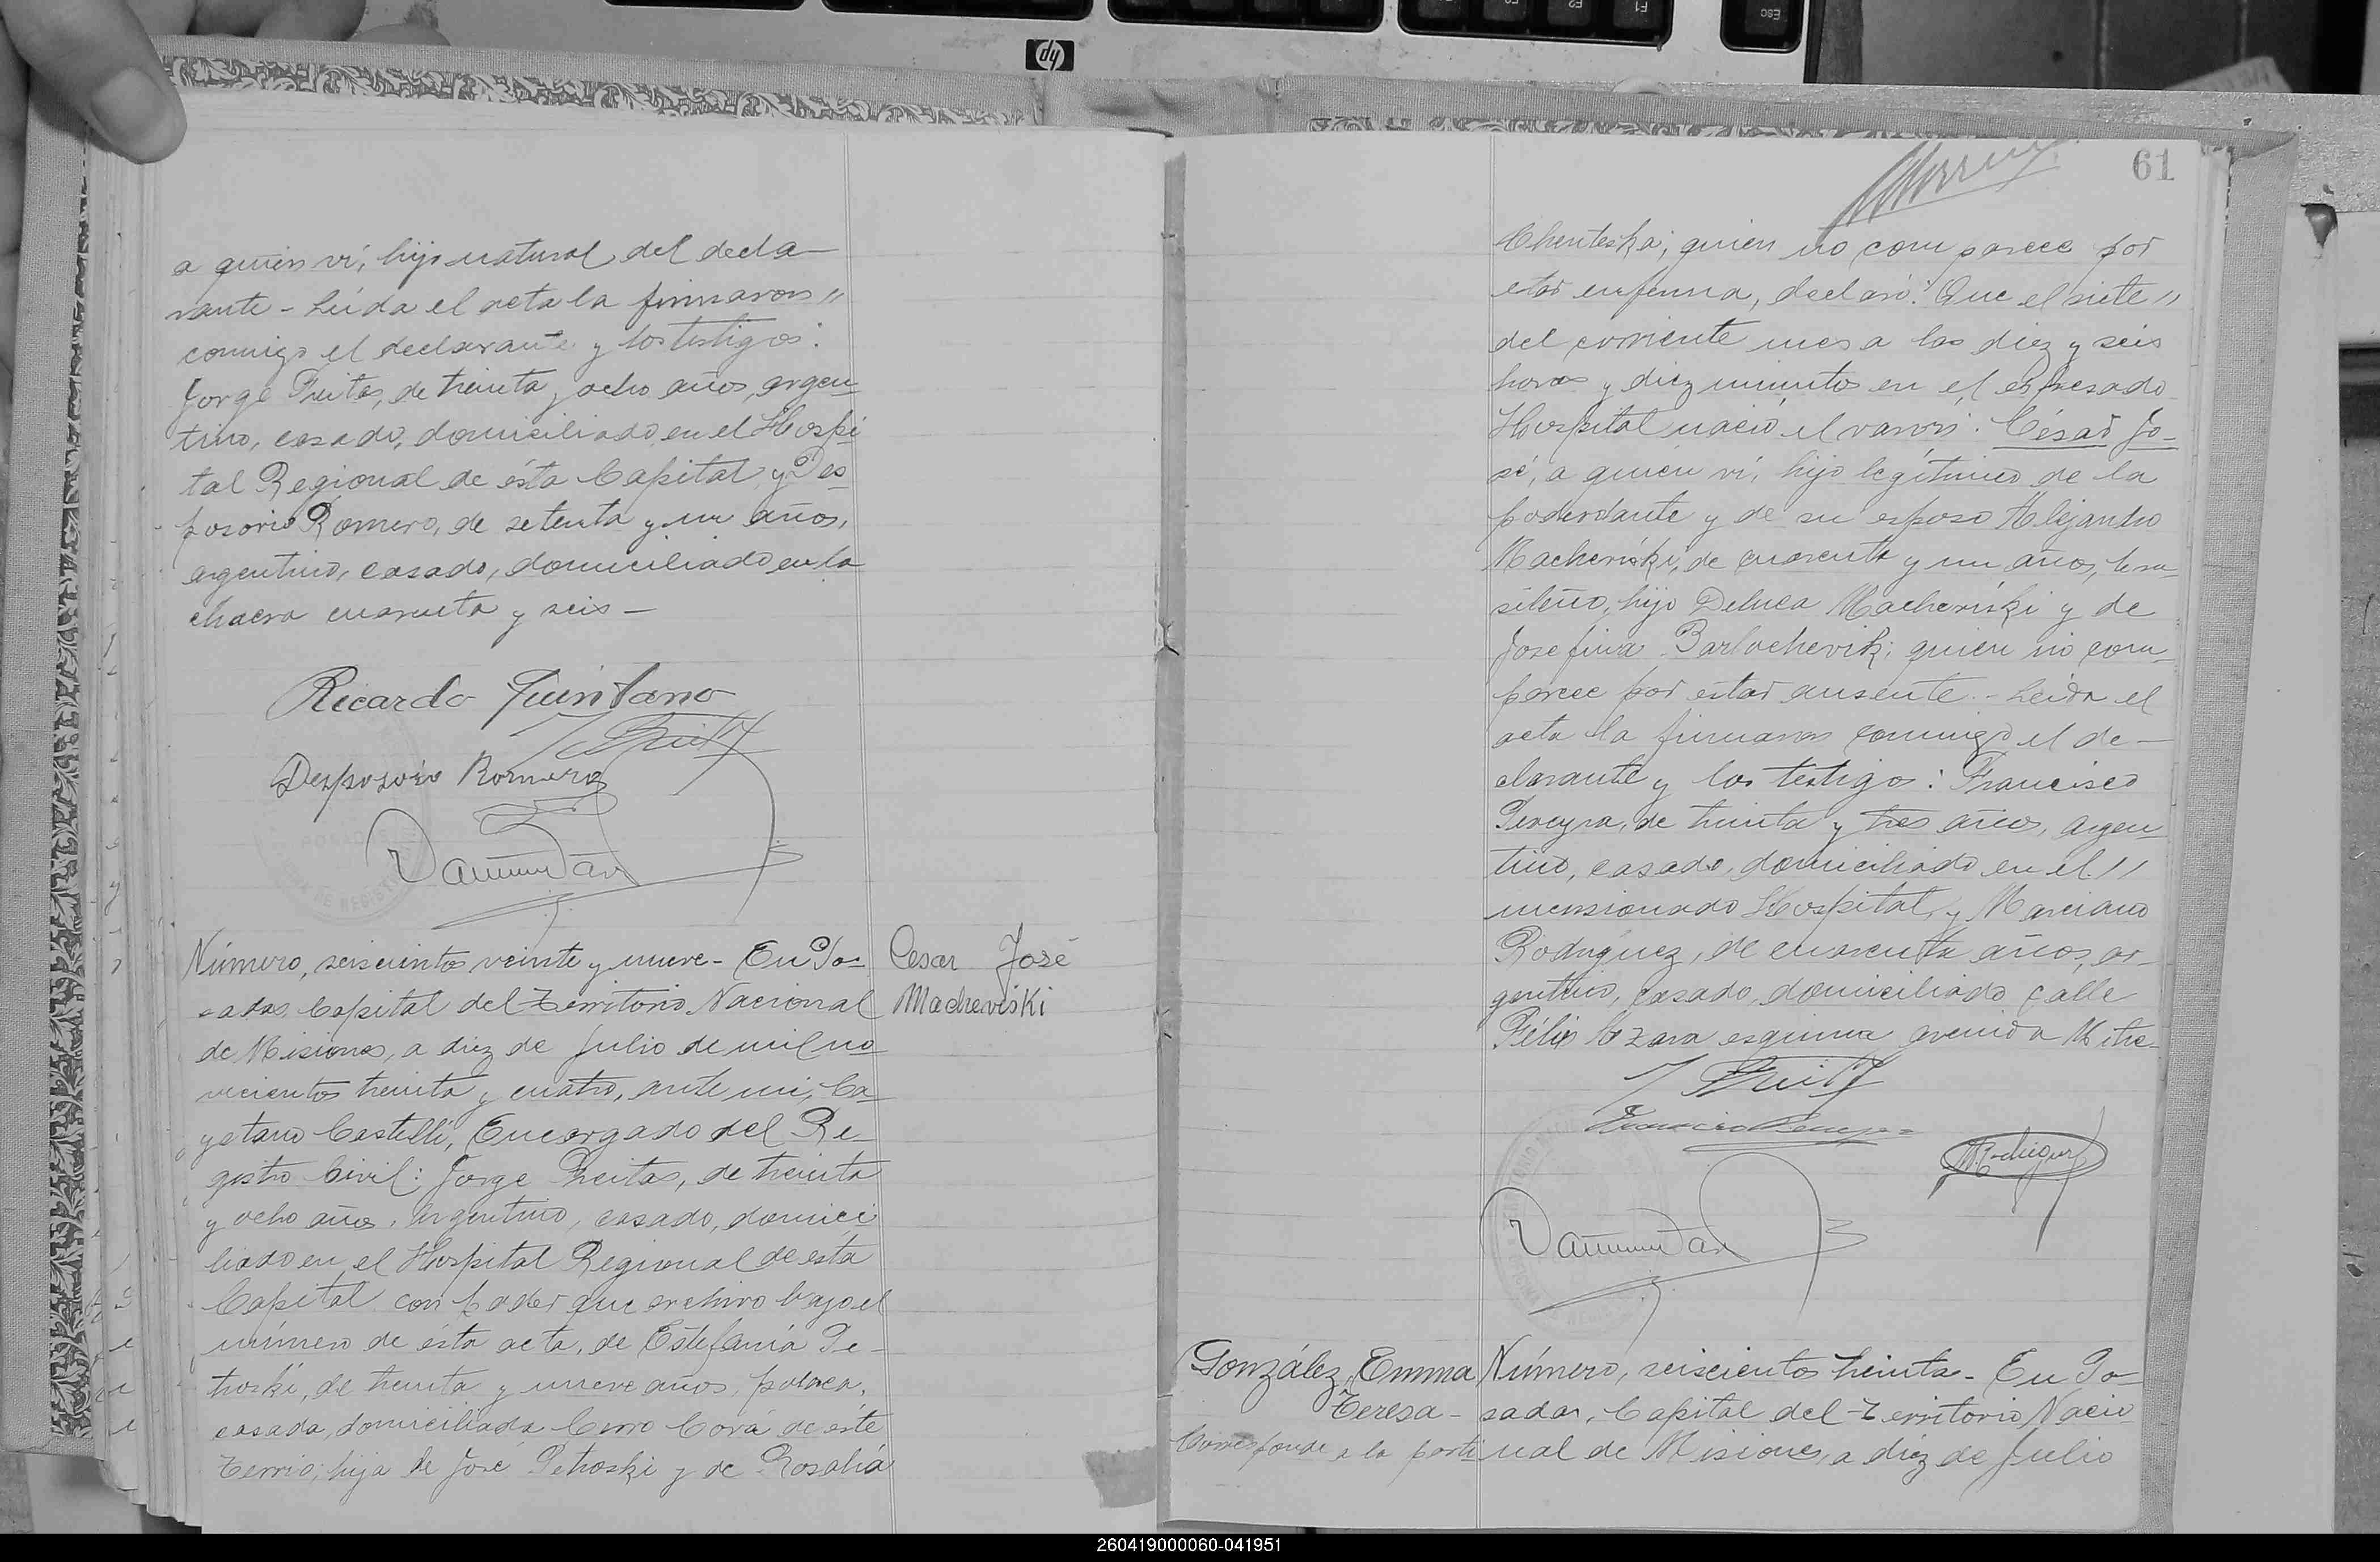 F1
F2
ESC
hp
a quien ví, hijo natural del decla-
rante - Leída el acta la firmaron "
conmigo el declarante y los testigos:
Jorge Freitas, de treinta y ocho años, argen-
tino, casado, domiciliado en el Hospi-
tal Regional de ésta Capital, y Des-
posorio Romero, de setenta y un años,
argentino, casado, domiciliado en la
chacra cuarenta y seis -
Ricardo Quintano
Desposorio Romero
POSADAS
DE REGIST
Número, seiscientos veinte y nueve - En Po-
sadas, Capital del Territorio Nacional
de Misiones, a diez de Julio de mil no-
vecientos treinta y cuatro, ante mi, Ca-
yetano Castelli, Encargado del Re-
gistro Civil: Jorge Freitas, de treinta
y ocho años, argentino, casado, domici
liado en el Hospital Regional de esta
Capital con poder que archivo bajo el
número de ésta acta, de Estefanía Pe-
troski, de treinta y nueve años, polaca,
casada, domiciliada Cerro Corá de éste
Terrio; hija de José Petroski y de Rosalía
Cesar José
Macheviski
61
Chenteska; quien no comparece por
estar enferma, declaró: Que el siete "
del corriente mes a las diez y seis
horas y diez minutos en el expresado
Hospital nació el varón: César Jo-
sé, a quien ví, hijo legítimo de la
poderdante y de su esposo Alejandro
Macheviski, de cuarenta y un años, bra-
sileño, hijo Deluca Macheviski y de
Josefina Barlochevik; quien no com-
parece por estar ausente. - Leida el
acta la firmaron conmigo el de-
clarante y los testigos: Francisco
Pereyra, de treinta y tres años, argen-
tino, casado, domiciliado en el "
mensionado Hospital, y Marciano
Rodríguez, de cuarenta años, ar-
gentino, casado, domiciliado calle
Félix Azara esquina avenida Mitre-
González, Emma
Teresa -
Corresponde a la parti
Número, seiscientos treinta - En Po-
sadas, Capital del Territorio Nacio
nal de Misiones, a diez de Julio
260419000060-041951